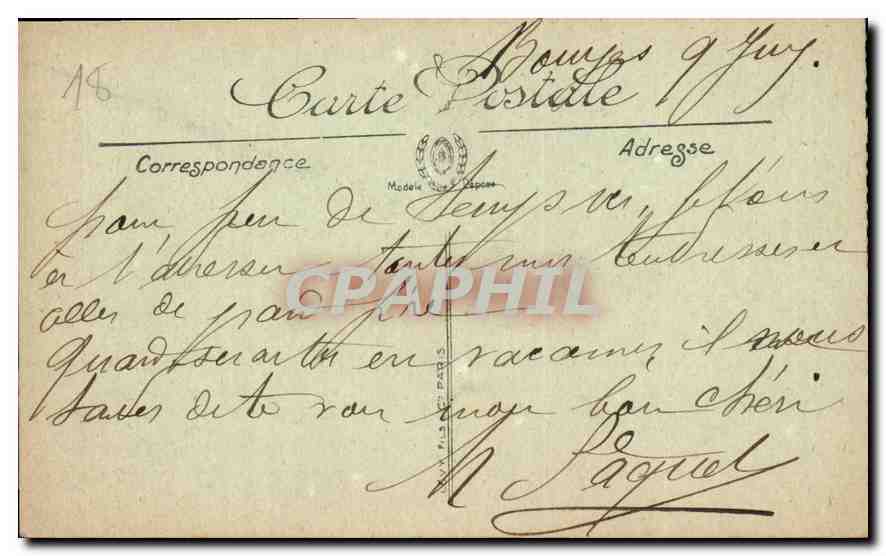 18
Bourges 9 Juy.
Carte Postale
Correspondance
Adresse
Modèle Déposé
pour peu de temps
à l'adresser toutes mes tendresses et
celles de grand père
Quand seras tu en vacances, il nous
tarde de te voir mon bon chéri
CPAPHIL
LEVY FILS & Cie PARIS
M Paquet